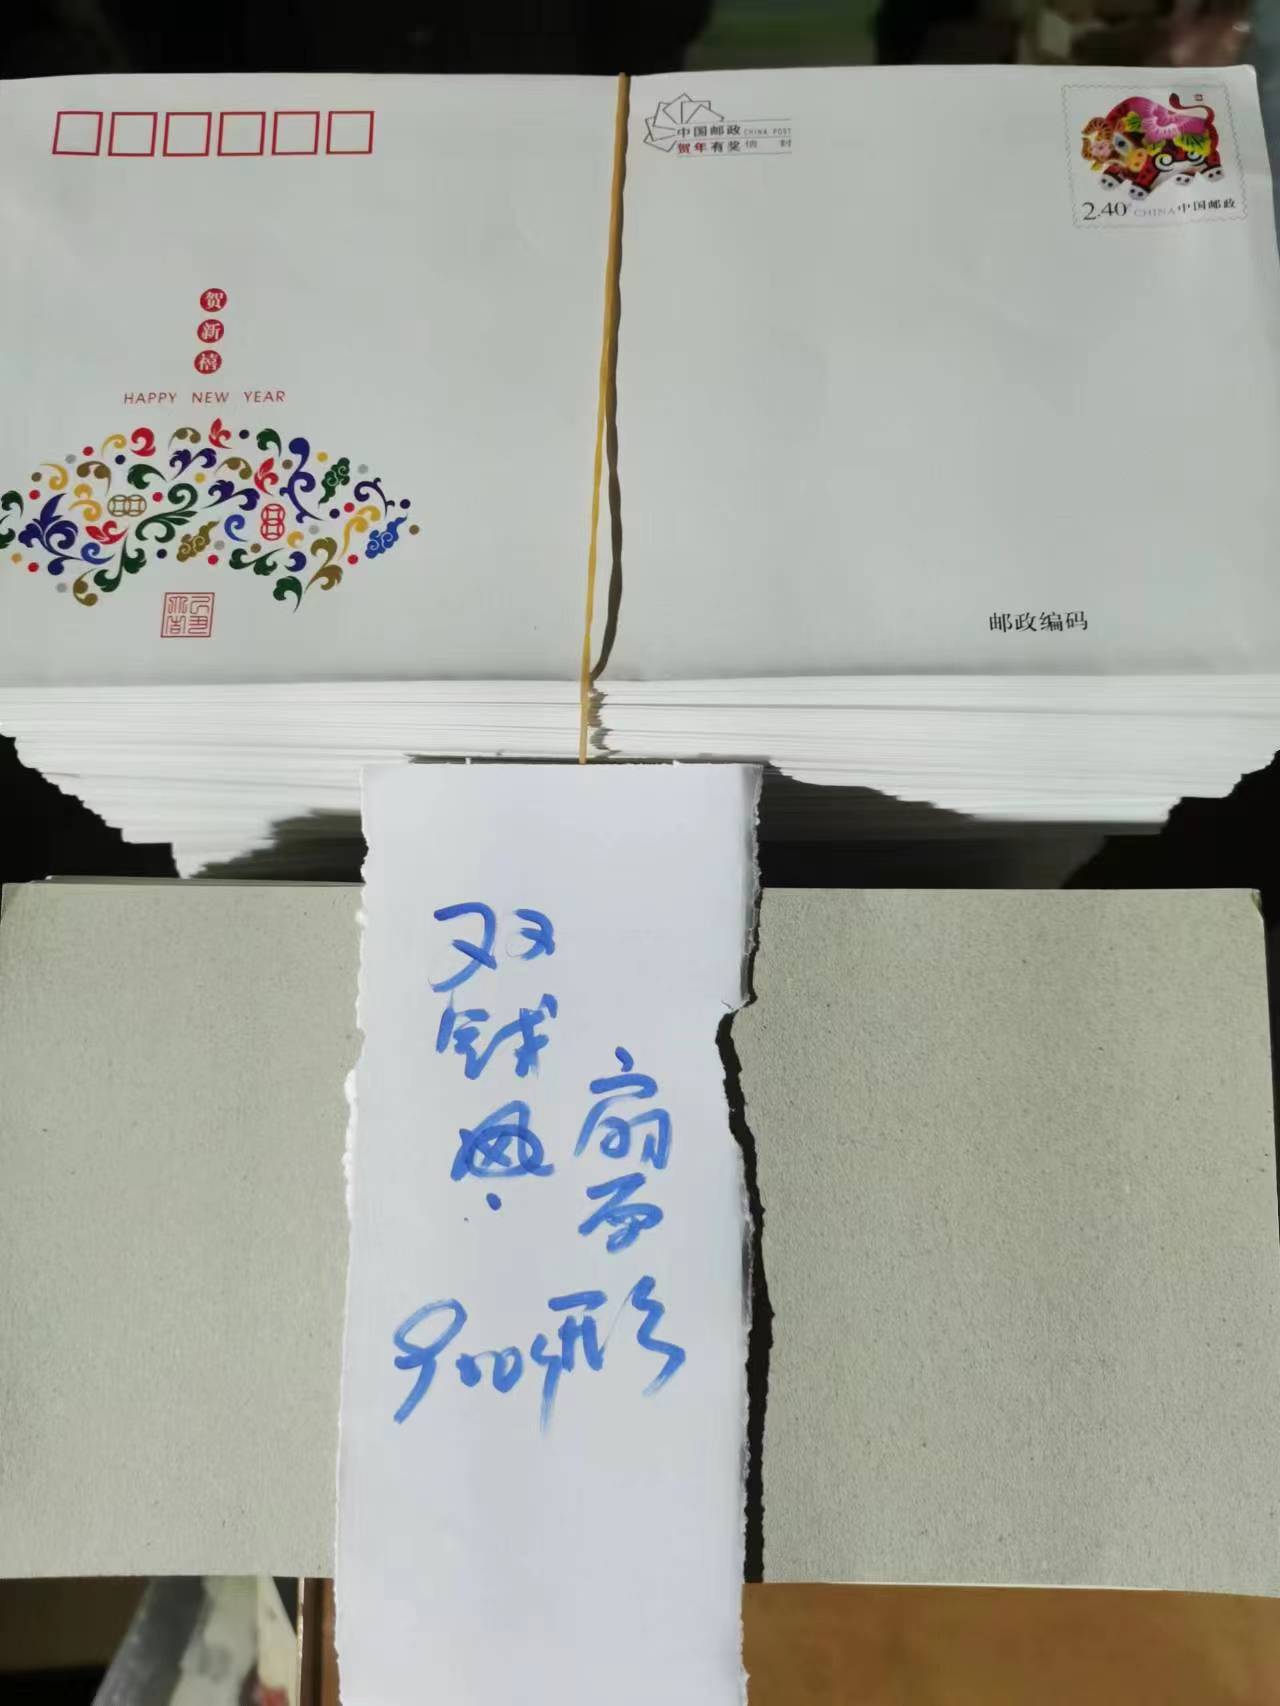 中国邮政 CHINA POST
贺年有奖信封
2.40 CHINA 中国邮政
贺新禧
HAPPY NEW YEAR
邮政编码
双钱
扇面形